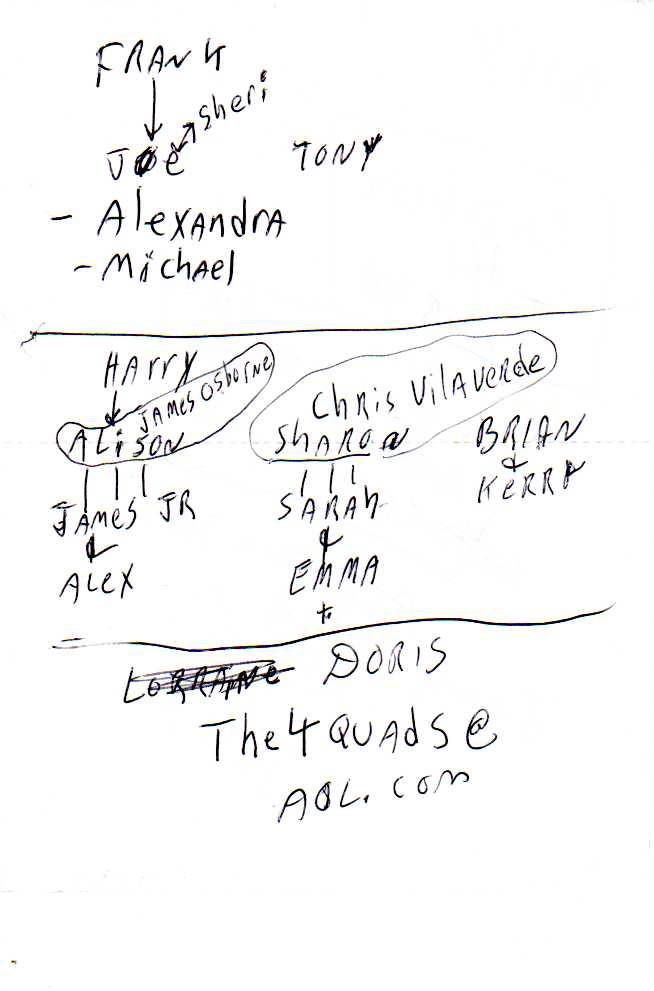 FRANK
Sheri
Joe TONY
- AlexANdrA
- MichAel
HArry
JAMES OSborne
Chris VilAVerde
ALiSON ShAroN BRIAN
KERRY
JAmes JR SARAh
ALEX EMMA
DORIS
The4QUAdS@
AOL.com